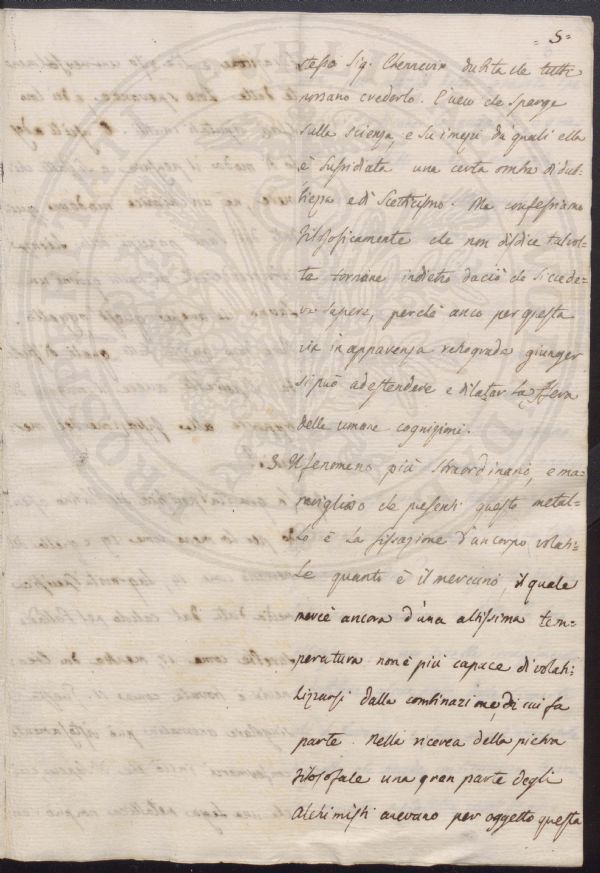 = 5 =
stesso Sig. Chenevix dubita che tutti
possano crederlo. È vero che sparge
sulla scienza, e su i mezzi da' quali ella
è sussidiata una certa ombra di dub-
biezza e di Scetticismo. Ma confessiamo
filosoficamente che non disdice talvol-
ta tornare indietro da ciò che si crede-
va sapere, perchè anco per questa
via in apparenza retrograda giunger
si può ad estendere e dilatar la sfera
delle umane cognizioni.
3. Il fenomeno più straordinario, e ma-
raviglioso che presenti questo metal-
lo è la fissazione d'un corpo volati-
le quanto è il mercurio, il quale
mercè ancora d'una altissima tem-
peratura non è più capace di volati-
lizzarsi dalla combinazione, di cui fa
parte. Nella ricerca della pietra
filosofale una gran parte degli
Alchimisti avevano per oggetto questa